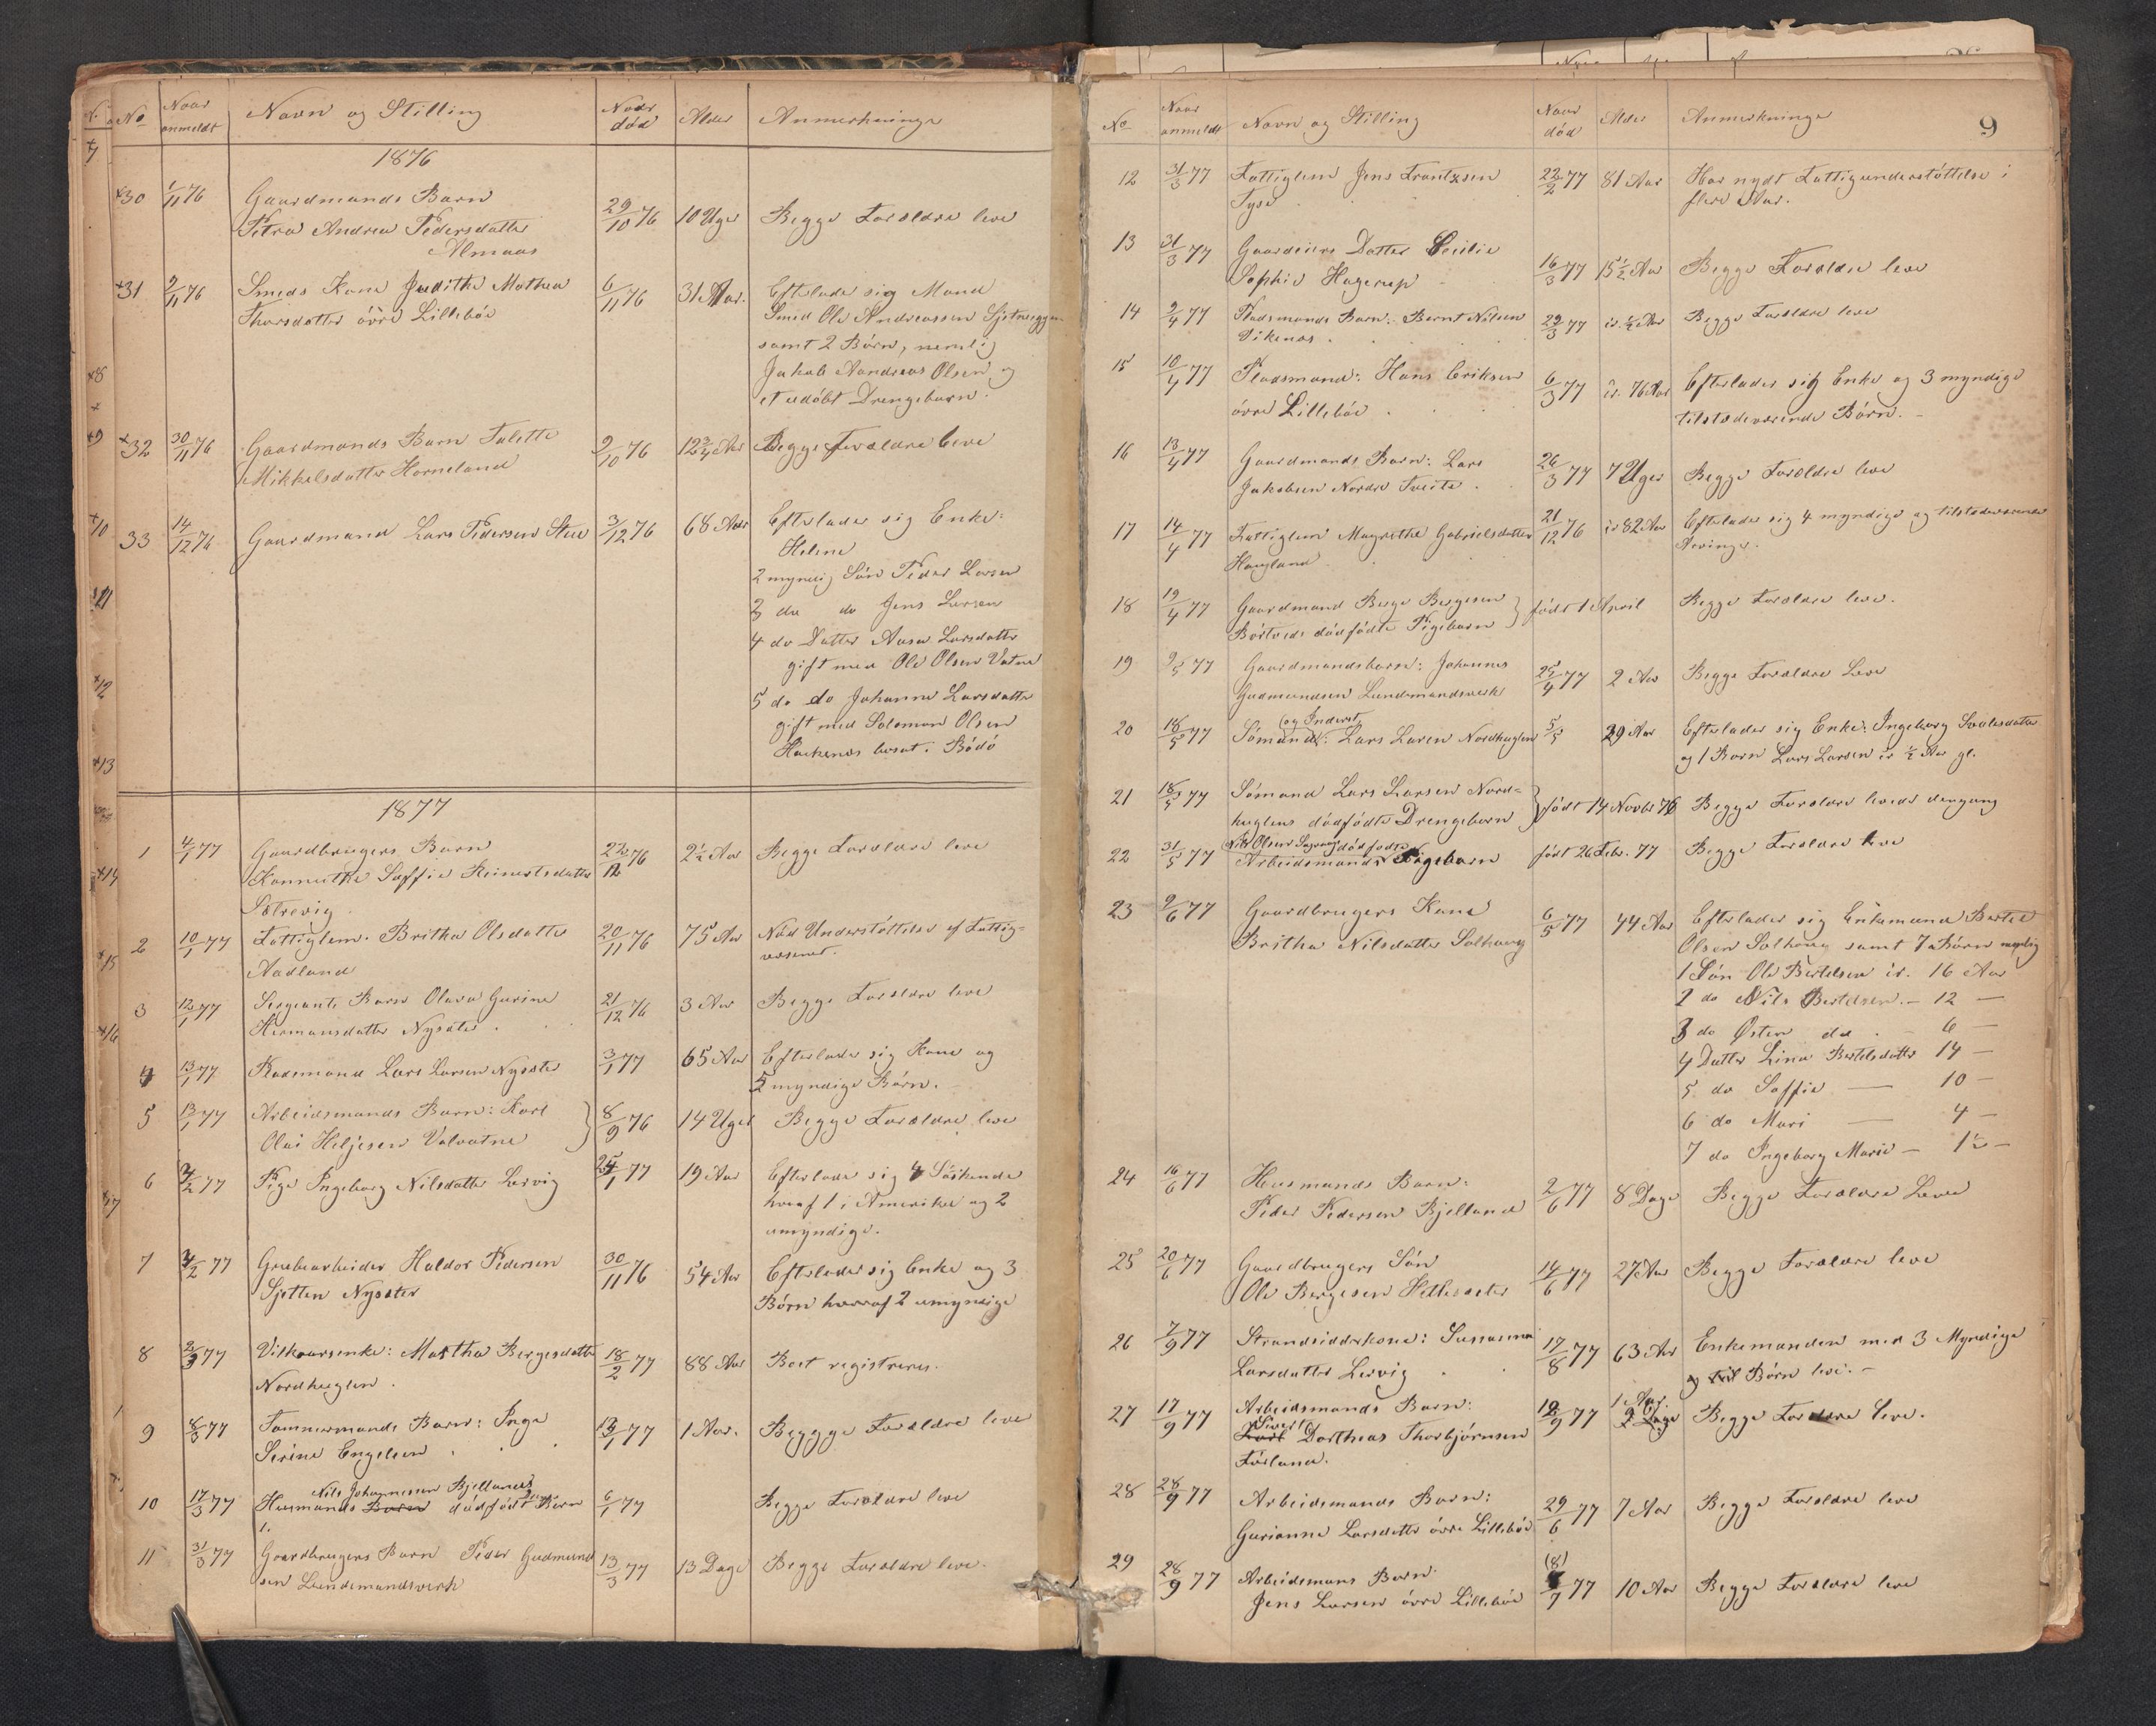 No Naar anmeldt Navn og Stilling Naar död Alder Anmerkninger
1876
30 1/11 76 Gaardmands Barn
Petra Andrea Pedersdatter 29/10 76 10 Uger Begge Foreldre leve
Almaas
31 9/11 76 Smeds Kone Judithe Mathea 6/11 76 31 Aar. Efterlader sig Mand
Thorsdatter övre Lillebøe Smed Ole Andreassen
samt 2 Börn, nemlig
Jakob Aandreas Olsen og
et udöbt Drengebarn.
32 30/11 76 Gaardmands Barn Talette 9/10 76 12 3/4 Aar Begge Foreldre leve
Mikkelsdatter Horneland
33 14/12 76 Gaardmand Lars Pedersen Stue 3/12 76 68 Aar Efterlader sig Enke:
Helene
2 myndig Sön Peder Larsen
3 do do Jens Larsen
4 do Datter Aasa Larsdatter
gift med Ole Olsen Vatne
5 do do Johanna Larsdatter
gift med Salomon Olsen
Haukenæs bosat i Bödö
1877
1 4/1 77 Gaardbrugers Barn 22/12 76 2 1/2 Aar Begge Foreldre leve
Saffie Reinertsdatter
Sætrevig
2 10/1 77 Fattiglem. Britha Olsdatter 20/11 76 75 Aar Nöd Understöttelse af Fattig-
Aadland væsenet.
3 12/1 77 Sergeants Barn Olava Gurine 21/12 76 3 Aar Begge Foreldre leve
Hermansdatter Nysæter.
4 13/1 77 Pladsmand Lars Larsen Nysæter 3/1 77 65 Aar Efterlader sig Kone og
5 myndige Börn.
5 13/1 77 Arbeidsmands Barn: Karl 8/9 76 14 Uger Begge Foreldre leve
Olai Heljesen Valvatne
6 3/2 77 Pige Ingeborg Nilsdatter Lervig 25/1 77 19 Aar Efterlader sig 4 Söskende
hvoraf 1 i Amerika og 2
umyndige.
7 3/2 77 Grubearbeider Haldor Pedersen 30/11 76 54 Aar Efterlader sig Enke og 3
Sjotten Nysæter Börn hvoraf 2 umyndige
8 2/3 77 Vilkaarsenke: Martha Bergesdatter 18/2 77 88 Aar Boet registreres.
Nordhuglen.
9 8/3 77 Tommermands Barn: Inga 13/1 77 1 Aar. Beggge Foreldre leve
Serine Engelsen
Nils Johannessen Bjellands
10 17/3 77 Husmands Barn dödfödt Barn 6/1 77 Begge Foreldre leve
11 31/3 77 Gaardbrugers Barn Peder Gudmund 13/3 77 13 Dage Begge Foreldre leve.
sen Lundemandsverk
9
No Naar anmeldt Navn og Stilling Naar död Alder Anmerkninger
12 31/3 77 Fattiglem Jens Frantzsen 22/2 77 81 Aar Har nydt Fattigunderstöttelse i
Tyse flere Aar.
13 31/3 77 Gaardeiers Datter Cecilie
Sophie Hagerup 16/3 77 15 1/2 Aar Begge Foreldre leve
14 9/4 77 Pladsmands Barn: Bernt Nilsen 29/3 77 ir. 1/2 Aar Begge Foreldre leve
Vikenæs.
15 10/4 77 Pladsmand: Hans Eriksen 6/3 77 ir. 76 Aar Efterlader sig Enke og 3 myndige
övre Lillebøe. tilstedeværende Börn.
16 13/4 77 Gaardmands Barn: Lars 26/3 77 7 Uger Begge Foreldre leve
Jakobsen Nordre Tveite.
17 14/4 77 Fattiglem Magrethe Gabrielsdatter 21/12 76 ir 82 Aar Efterlader sig 4 myndige og tilstedeværende
Haugland Arvinger.
18 19/4 77 Gaardmand Berge Bergesen födt 1 April Begge Foreldre leve.
Börtveds dödfödte Pigebarn
19 9/5 77 Gaardmandsbarn: Johannes 25/4 77 2 Aar Begge Foreldre Leve
Gudmundsen Lundemandsverk
og Inderst
20 18/5 77 Sömand: Lars Larsen Nordhuglen 5/5 29 Aar Efterlader sig Enke: Ingeborg
og 1 Barn Lars Larsen ir 1/2 Aar gl.
21 18/5 77 Sömand Lars Larsen Nord- födt 14 Novbr 76 Begge Foreldre levede dengang
huglens dödfödte Drengebarn
Nils Olsen dödfödt
22 31/5 77 Arbeidsmands Pigebarn födt 26 Febr. 77 Begge Foreldre leve
23 9/6 77 Gaardbrugers Kone 6/5 77 44 Aar Efterlader sig Enkemand Bertel
Britha Nilsdatter Solhoug Olsen Solhoug samt 7 Börn nemlig
1 Sön Ole Bertelsen ir. 16 Aar
2 do Nils Bertelsen. – 12 –
3 do Østen do – 6 –
4 Datter Lina Bertelsdatter 14 –
5 do Saffie — 10 –
6 do Mari — 4 –
7 do Ingeborg Marie – 1 1/2 –
24 16/6 77 Husmands Barn: 2/6 77 8 Dage Begge Foreldre Leve
Peder Pedersen Bjelland
25 20/6 77 Gaardbrugers Sön 14/6 77 27 Aar Begge Foreldre leve
Ole Bergesen Hettesæter
26 7/9 77 Strandsidderkone: Sussanna 17/8 77 63 Aar Enkemanden med 3 Myndige
Larsdatter Lervig Börn leve.
27 17/9 77 Arbeidsmands Barn: 12/9 77 1 Aar Begge Foreldre leve.
Sivert
Karl Dortheas Thorbjørnsen
Förland.
28 28/9 77 Arbeidsmands Barn: 29/6 77 7 Aar Begge Foreldre leve
Gurianne Larsdatter övre Lillebøe
29 28/9 77 Arbeidsmans Barn (8)/7 77 10 Aar Begge Foreldre leve
Jens Larsen övre Lillebøe